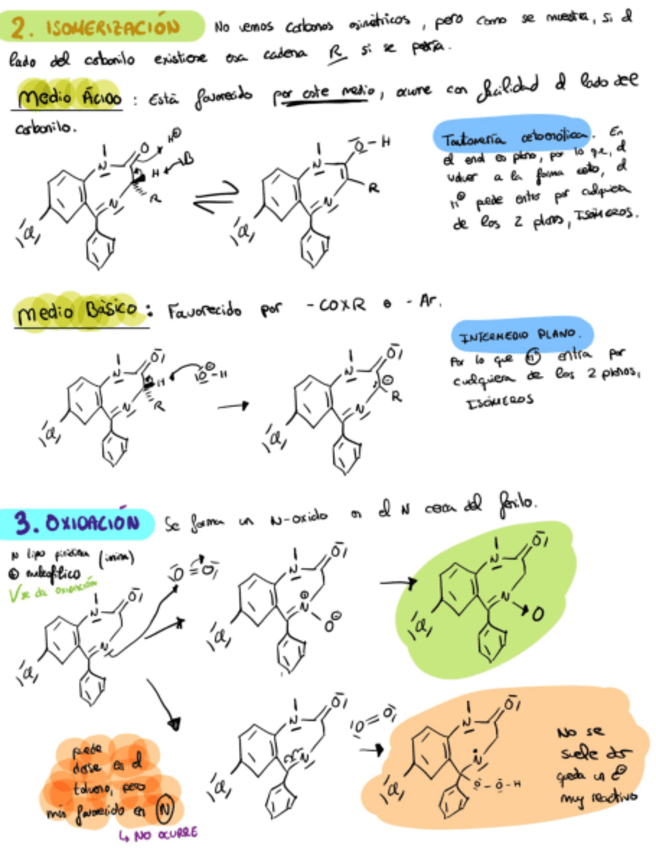 2. ISOMERIZACIÓN No vemos carbonos asimétricos, pero como se muestra, si al
lado del carbonilo existiese esa cadena R sí se podría.
Medio Ácido: Está favorecido por este medio, ocurre con facilidad al lado del
carbonilo.
Tautomería cetoenólica. En
el enol es plano, por lo que, al
volver a la forma ceto, el
H⊕ puede entrar por cualquiera
de los 2 planos, ISÓMEROS.
Medio Básico: Favorecido por -COXR o -Ar.
INTERMEDIO PLANO.
Por lo que H⊕ entra por
cualquiera de los 2 planos,
ISÓMEROS
3. OXIDACIÓN Se forma un N-oxido en el N cerca del fenilo.
N tipo piridina (imina)
⊕ nucleofílico
√ se da oxidación
puede
darse en el
tolueno, pero
más favorecido en N
↳ NO OCURRE
No se
suele dar
queda un
muy reactivo